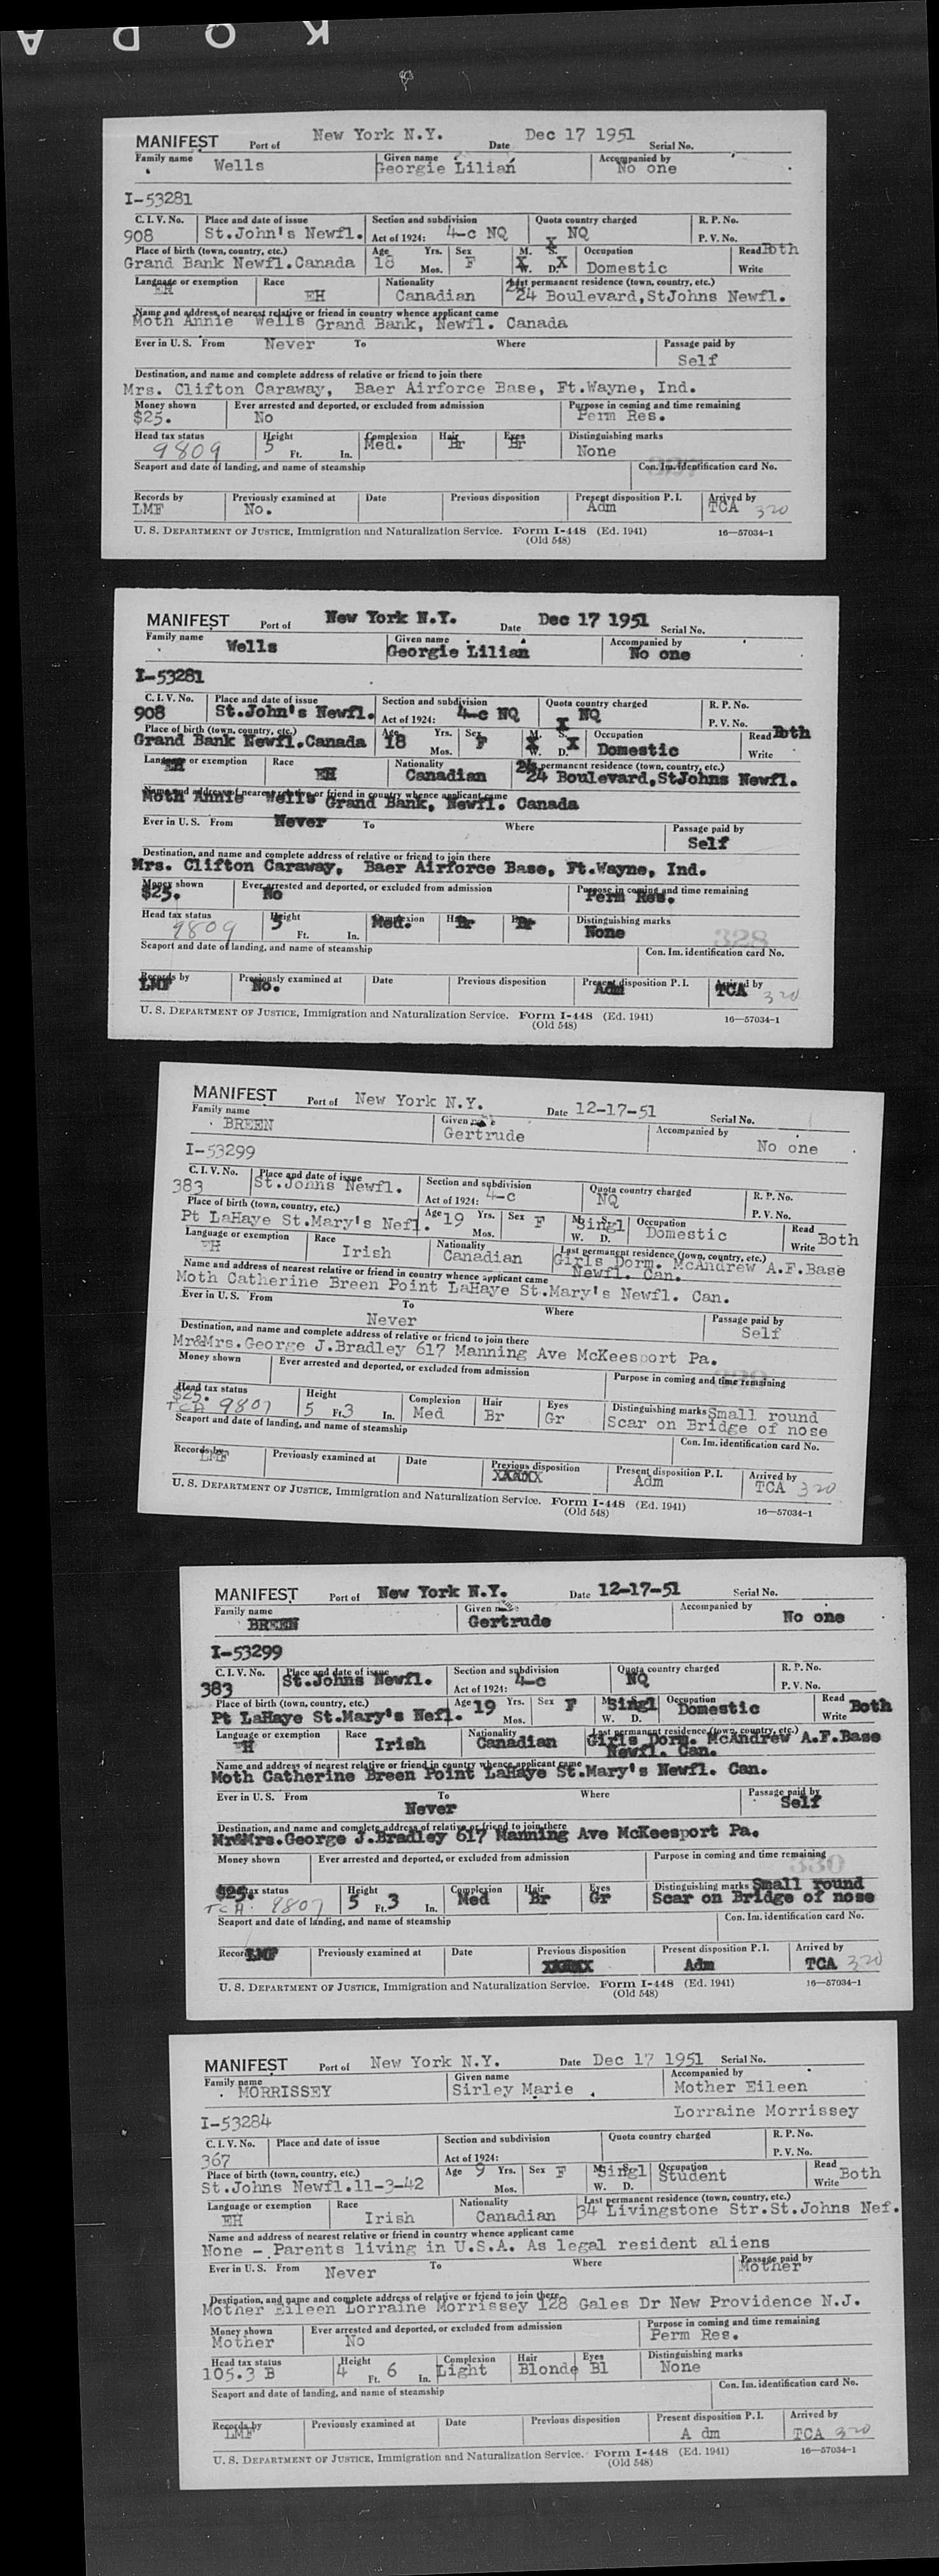 A D O K
MANIFEST Port of New York N.Y. Date Dec 17 1951 Serial No.
Family name Wells Given name Georgie Lilian Accompanied by No one
I-53281
C. I. V. No. Place and date of issue Section and subdivision Quota country charged R. P. No.
908 St.John's Newfl. Act of 1924: 4-c NQ NQ P. V. No.
Place of birth (town, country, etc.) Age Yrs. Sex M. S. Occupation Read Both
Grand Bank Newfl.Canada 18 Mos. F X W. D. X Domestic Write
Language or exemption Race Nationality Last permanent residence (town, country, etc.)
EH EH Canadian 24 Boulevard,StJohns Newfl.
Name and address of nearest relative or friend in country whence applicant came
Moth Annie Wells Grand Bank, Newfl. Canada
Ever in U. S. From Never To Where Passage paid by
Self
Destination, and name and complete address of relative or friend to join there
Mrs. Clifton Caraway, Baer Airforce Base, Ft.Wayne, Ind.
Money shown Ever arrested and deported, or excluded from admission Purpose in coming and time remaining
$25. No Perm Res.
Head tax status Height Complexion Hair Eyes Distinguishing marks
9809 5 Ft. In. Med. Br Br None
Seaport and date of landing, and name of steamship Con. Im. identification card No.
Records by Previously examined at Date Previous disposition Present disposition P. I. Arrived by
LMF No. Adm TCA 320
U. S. DEPARTMENT OF JUSTICE, Immigration and Naturalization Service. Form I-448 (Ed. 1941) 16—57034-1
(Old 548)
MANIFEST Port of New York N.Y. Date Dec 17 1951 Serial No.
Family name Wells Given name Georgie Lilian Accompanied by No one
I-53281
C. I. V. No. Place and date of issue Section and subdivision Quota country charged R. P. No.
908 St.John's Newfl. Act of 1924: 4-c NQ NQ P. V. No.
Place of birth (town, country, etc.) Age Yrs. Sex M. S. Occupation Read Both
Grand Bank Newfl.Canada 18 Mos. F X W. D. X Domestic Write
Language or exemption Race Nationality permanent residence (town, country, etc.)
EH EH Canadian 24 Boulevard,StJohns Newfl.
Name and address of nearest relative or friend in country whence applicant came
Moth Annie Wells Grand Bank, Newfl. Canada
Ever in U. S. From Never To Where Passage paid by
Self
Destination, and name and complete address of relative or friend to join there
Mrs. Clifton Caraway, Baer Airforce Base, Ft.Wayne, Ind.
Money shown Ever arrested and deported, or excluded from admission Purpose in coming and time remaining
$25. No Perm Res.
Head tax status Height Complexion Hair Distinguishing marks
9809 5 Ft. In. Med. Br Br None 328
Seaport and date of landing, and name of steamship Con. Im. identification card No.
Records by Previously examined at Date Previous disposition Present disposition P. I. Arrived by
LMF No. Adm TCA 320
U. S. DEPARTMENT OF JUSTICE, Immigration and Naturalization Service. Form I-448 (Ed. 1941) 16—57034-1
(Old 548)
MANIFEST Port of New York N.Y. Date 12-17-51 Serial No.
Family name BREEN Given name Gertrude Accompanied by No one
I-53299
C. I. V. No. Place and date of issue Section and subdivision Quota country charged R. P. No.
383 St.Johns Newfl. Act of 1924: 4-c NQ P. V. No.
Place of birth (town, country, etc.) Age 19 Yrs. Sex F M. S. Occupation Read
Pt LaHaye St.Mary's Nefl. Mos. Singl W. D. Domestic Write Both
Language or exemption Race Nationality Last permanent residence (town, country, etc.)
EH Irish Canadian Girls Dorm. McAndrew A.F.Base
Newfl. Can.
Name and address of nearest relative or friend in country whence applicant came
Moth Catherine Breen Point LaHaye St.Mary's Newfl. Can.
Ever in U. S. From To Where Passage paid by
Never Self
Destination, and name and complete address of relative or friend to join there
Mr&Mrs.George J.Bradley 617 Manning Ave McKeesport Pa.
Money shown Ever arrested and deported, or excluded from admission Purpose in coming and time remaining
Head tax status Height Complexion Hair Eyes Distinguishing marks Small round
$25. TCA 9807 5 Ft. 3 In. Med Br Gr Scar on Bridge of nose
Seaport and date of landing, and name of steamship Con. Im. identification card No.
Records by Previously examined at Date Previous disposition Present disposition P. I. Arrived by
LMF Adm TCA 320
U. S. DEPARTMENT OF JUSTICE, Immigration and Naturalization Service. Form I-448 (Ed. 1941) 16—57034-1
(Old 548)
MANIFEST Port of New York N.Y. Date 12-17-51 Serial No.
Family name BREEN Given name Gertrude Accompanied by No one
I-53299
C. I. V. No. Place and date of issue Section and subdivision Quota country charged R. P. No.
383 St.Johns Newfl. Act of 1924: 4-c NQ P. V. No.
Place of birth (town, country, etc.) Age 19 Yrs. Sex F M. S. Occupation Read Both
Pt LaHaye St.Mary's Nefl. Mos. Singl W. D. Domestic Write
Language or exemption Race Nationality Last permanent residence (town, country, etc.)
EH Irish Canadian Girls Dorm. McAndrew A.F.Base
Newfl. Can.
Name and address of nearest relative or friend in country whence applicant came
Moth Catherine Breen Point LaHaye St.Mary's Newfl. Can.
Ever in U. S. From To Where Passage paid by
Never Self
Destination, and name and complete address of relative or friend to join there
Mr&Mrs.George J.Bradley 617 Manning Ave McKeesport Pa.
Money shown Ever arrested and deported, or excluded from admission Purpose in coming and time remaining
330
$25. tax status Height Complexion Hair Eyes Distinguishing marks Small round
TCA. 9807 5 Ft. 3 In. Med Br Gr Scar on Bridge of nose
Seaport and date of landing, and name of steamship Con. Im. identification card No.
Records LMF Previously examined at Date Previous disposition Present disposition P. I. Arrived by
Adm TCA 320
U. S. DEPARTMENT OF JUSTICE, Immigration and Naturalization Service. Form I-448 (Ed. 1941) 16—57034-1
(Old 548)
MANIFEST Port of New York N.Y. Date Dec 17 1951 Serial No.
Family name MORRISSEY Given name Sirley Marie Accompanied by Mother Eileen
I-53284 Lorraine Morrissey
C. I. V. No. Place and date of issue Section and subdivision Quota country charged R. P. No.
367 Act of 1924: P. V. No.
Place of birth (town, country, etc.) Age 9 Yrs. Sex F M. S. Occupation Read
St.Johns Newfl.11-3-42 Mos. Singl W. D. Student Write Both
Language or exemption Race Nationality Last permanent residence (town, country, etc.)
EH Irish Canadian 34 Livingstone Str.St.Johns Nef.
Name and address of nearest relative or friend in country whence applicant came
None - Parents living in U.S.A. As legal resident aliens
Ever in U. S. From Never To Where Passage paid by
Mother
Destination, and name and complete address of relative or friend to join there
Mother Eileen Lorraine Morrissey 128 Gales Dr New Providence N.J.
Money shown Ever arrested and deported, or excluded from admission Purpose in coming and time remaining
Mother No Perm Res.
Head tax status Height Complexion Hair Eyes Distinguishing marks
105.3 B 4 Ft. 6 In. Light Blonde Bl None
Seaport and date of landing, and name of steamship Con. Im. identification card No.
Records by Previously examined at Date Previous disposition Present disposition P. I. Arrived by
LMF A dm TCA 320
U. S. DEPARTMENT OF JUSTICE, Immigration and Naturalization Service. Form I-448 (Ed. 1941) 16—57034-1
(Old 548)